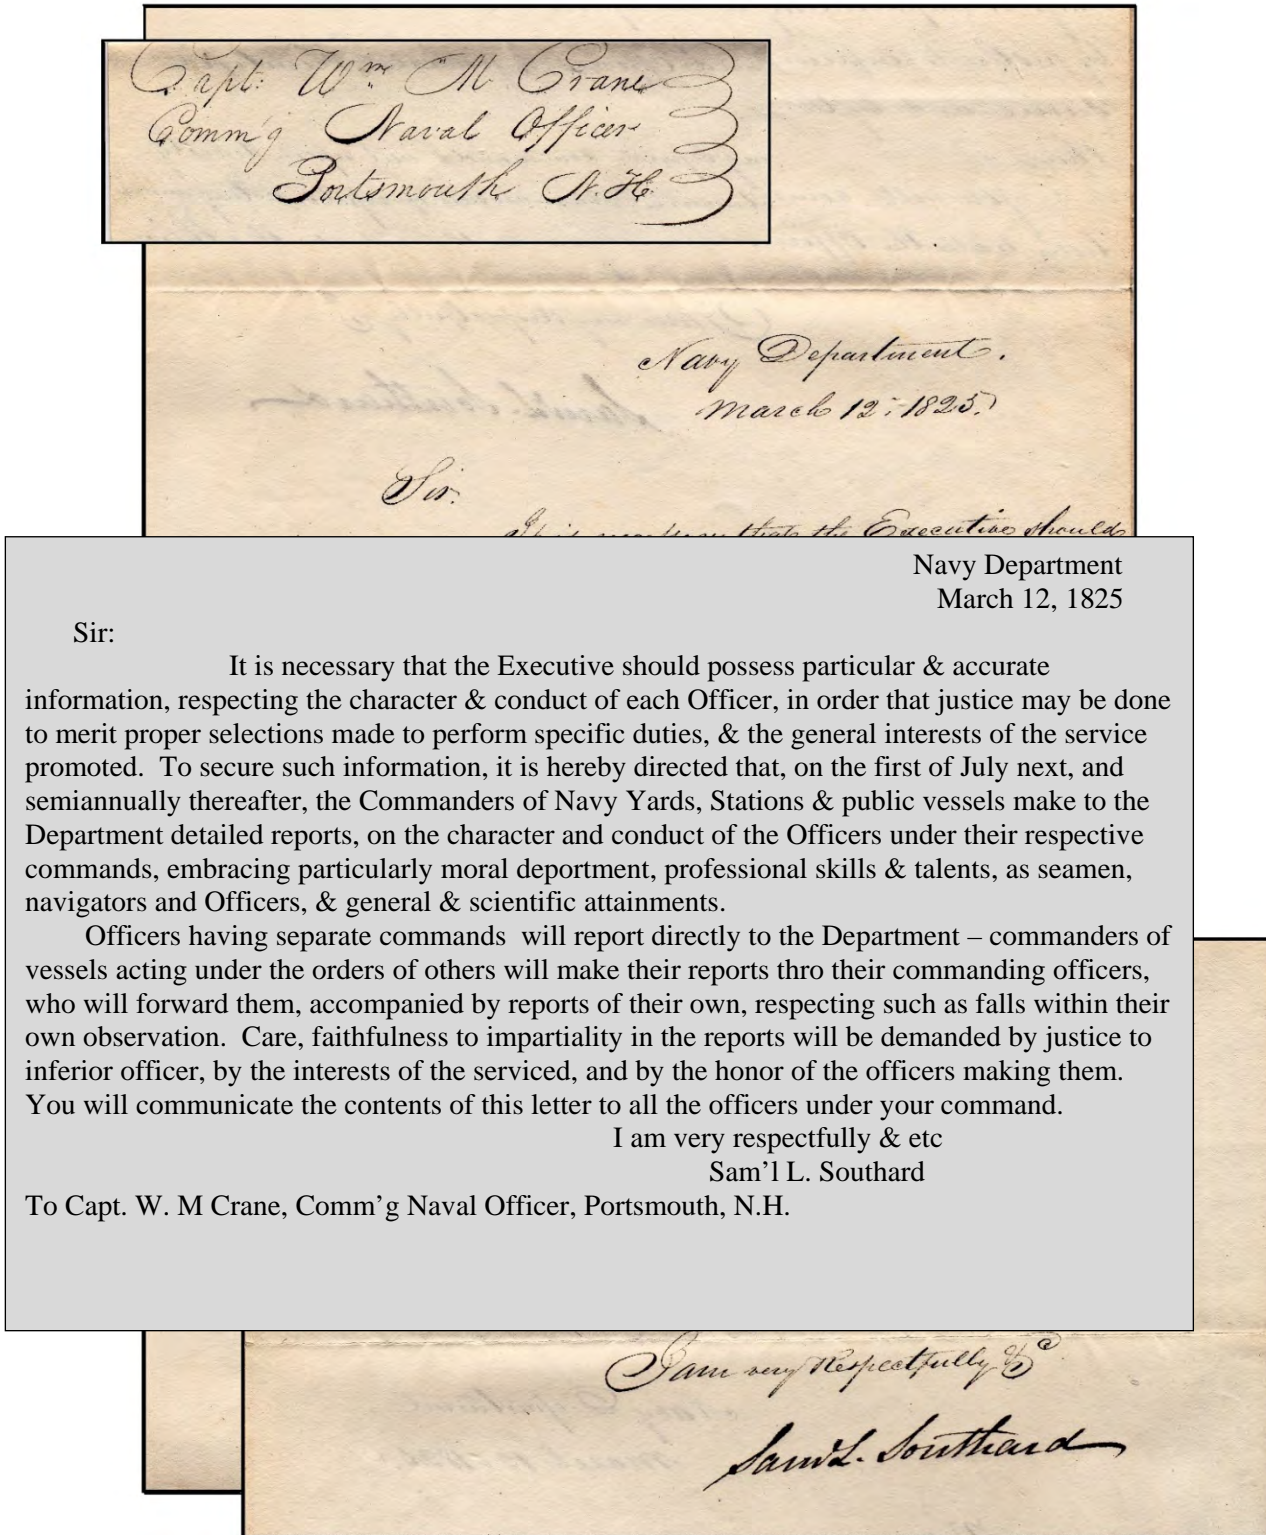 Capt: Wm M Crane
Comm'g Naval Officer
Portsmouth N.H.
Navy Department.
March 12: 1825.
Sir.
It is necessary that the Executive should
Navy Department
March 12, 1825
Sir:
It is necessary that the Executive should possess particular & accurate
information, respecting the character & conduct of each Officer, in order that justice may be done
to merit proper selections made to perform specific duties, & the general interests of the service
promoted. To secure such information, it is hereby directed that, on the first of July next, and
semiannually thereafter, the Commanders of Navy Yards, Stations & public vessels make to the
Department detailed reports, on the character and conduct of the Officers under their respective
commands, embracing particularly moral deportment, professional skills & talents, as seamen,
navigators and Officers, & general & scientific attainments.
Officers having separate commands will report directly to the Department – commanders of
vessels acting under the orders of others will make their reports thro their commanding officers,
who will forward them, accompanied by reports of their own, respecting such as falls within their
own observation. Care, faithfulness to impartiality in the reports will be demanded by justice to
inferior officer, by the interests of the serviced, and by the honor of the officers making them.
You will communicate the contents of this letter to all the officers under your command.
I am very respectfully & etc
Sam'l L. Southard
To Capt. W. M Crane, Comm'g Naval Officer, Portsmouth, N.H.
I am very Respectfully &c
Saml L. Southard